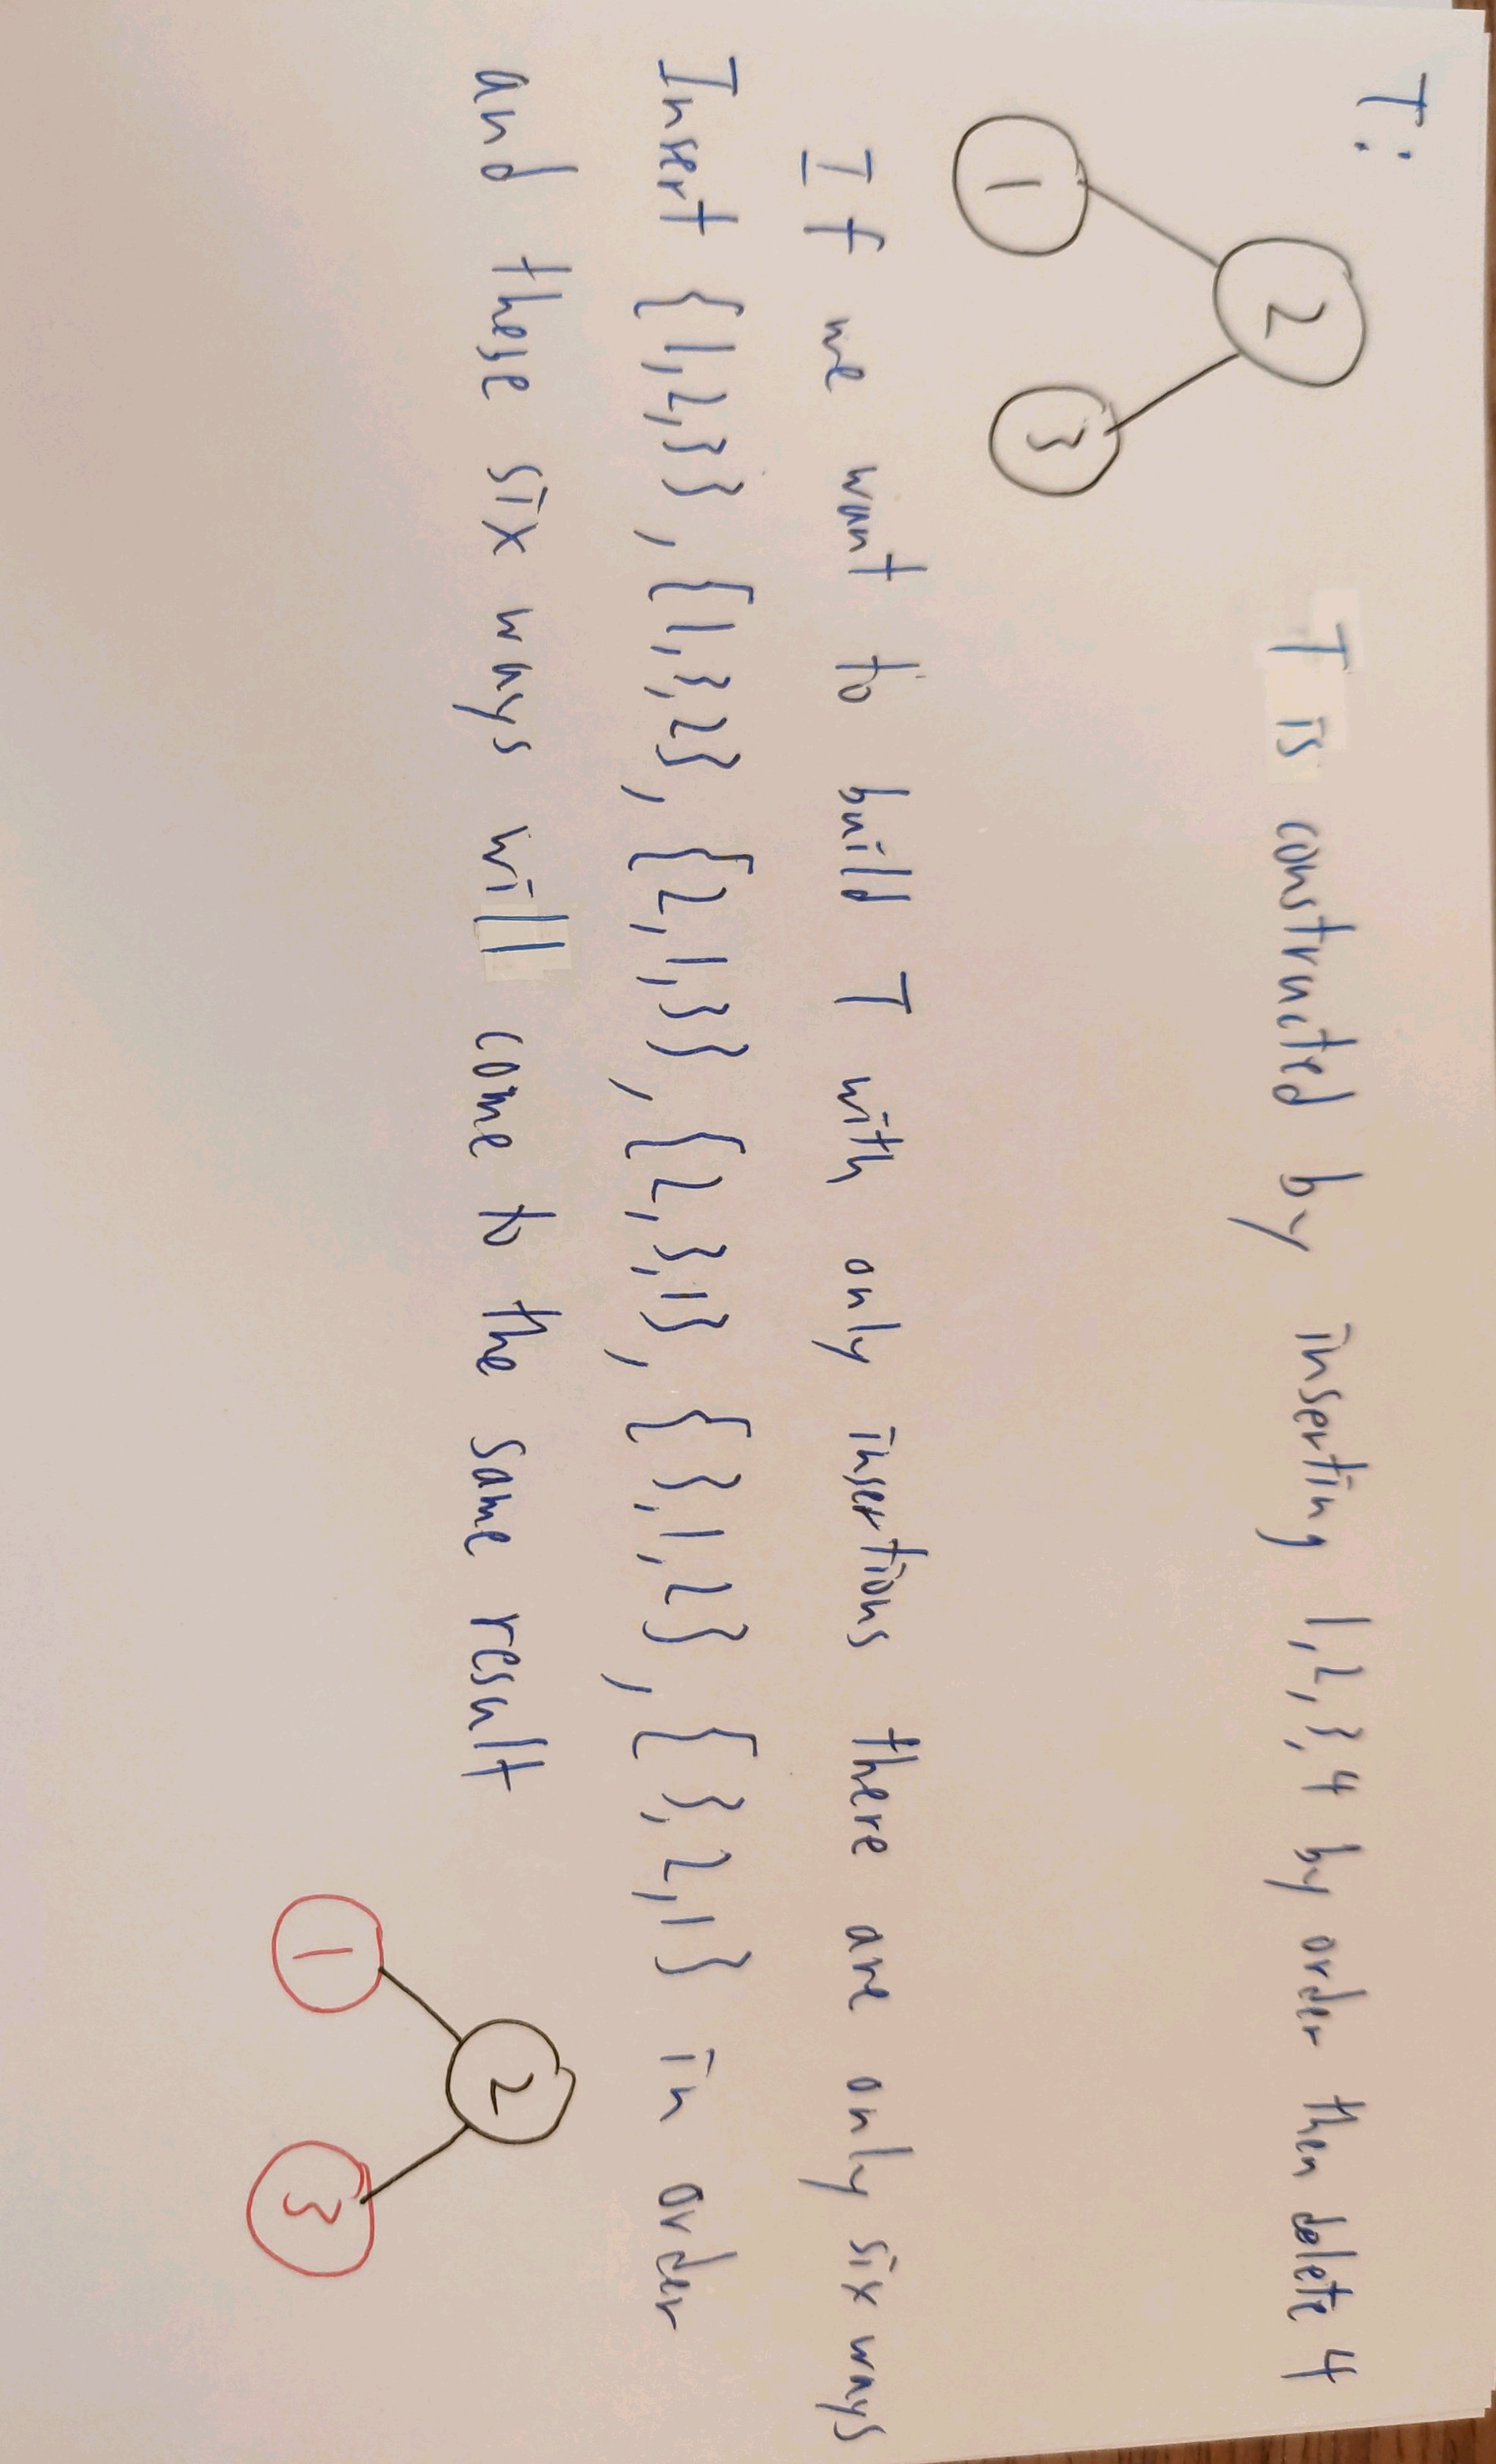 T:
2
T is constructed by inserting 1,2,3,4 by order then delete 4
1
3
If we want to build T with only insertions there are only six ways
Insert {1,2,3}, {1,3,2}, {2,1,3}, {2,3,1}, {3,1,2}, {3,2,1} in order
and these six ways will come to the same result
2
1
3